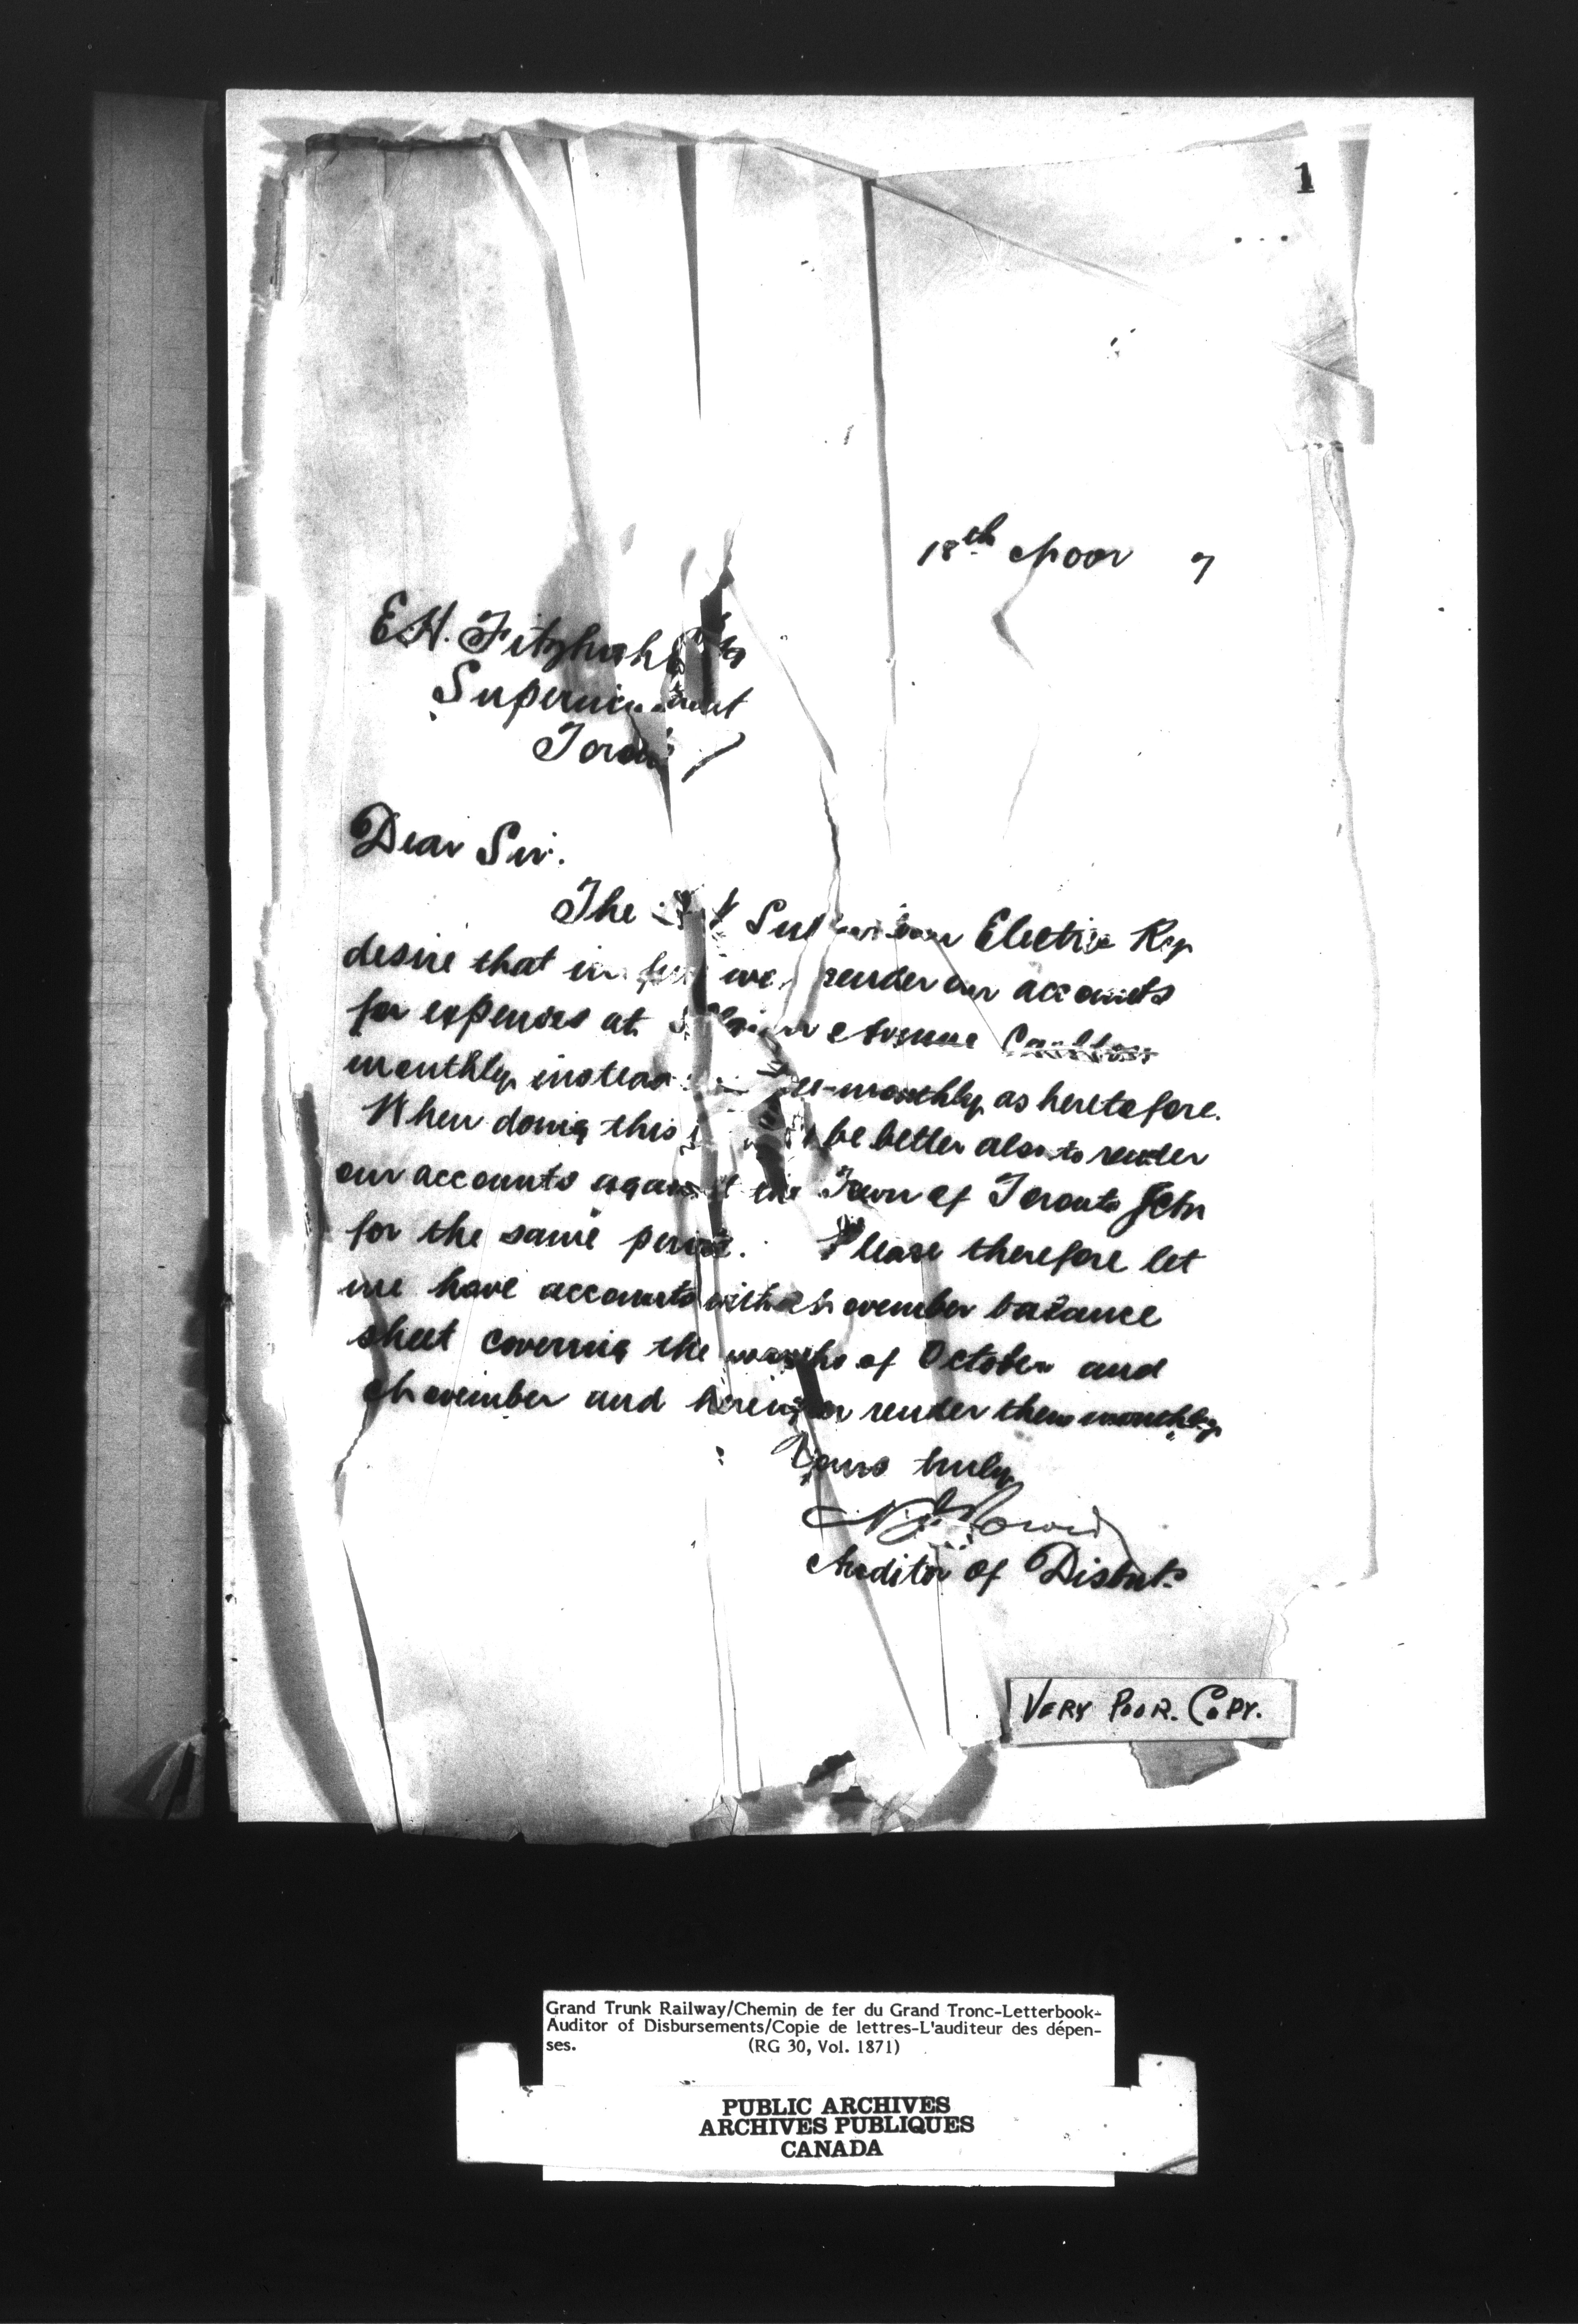 1
18th Novr 7
E.H. Fitzhugh Esq
Superintendent
Toronto
Dear Sir.
The Suburban Electric Ry
desire that in we render our accounts
for expenses at Avenue Carlton
monthly instead -monthly as heretofore.
When doing this be better also to render
our accounts against the Town of Toronto Jctn
for the same period. Please therefore let
me have accounts with November balance
sheet covering the months of October and
November and hereafter render them monthly
Yours truly
Auditor of Disbmts.
VERY POOR. COPY.
Grand Trunk Railway/Chemin de fer du Grand Tronc-Letterbook-
Auditor of Disbursements/Copie de lettres-L'auditeur des dépen-
ses. (RG 30, Vol. 1871)
PUBLIC ARCHIVES
ARCHIVES PUBLIQUES
CANADA